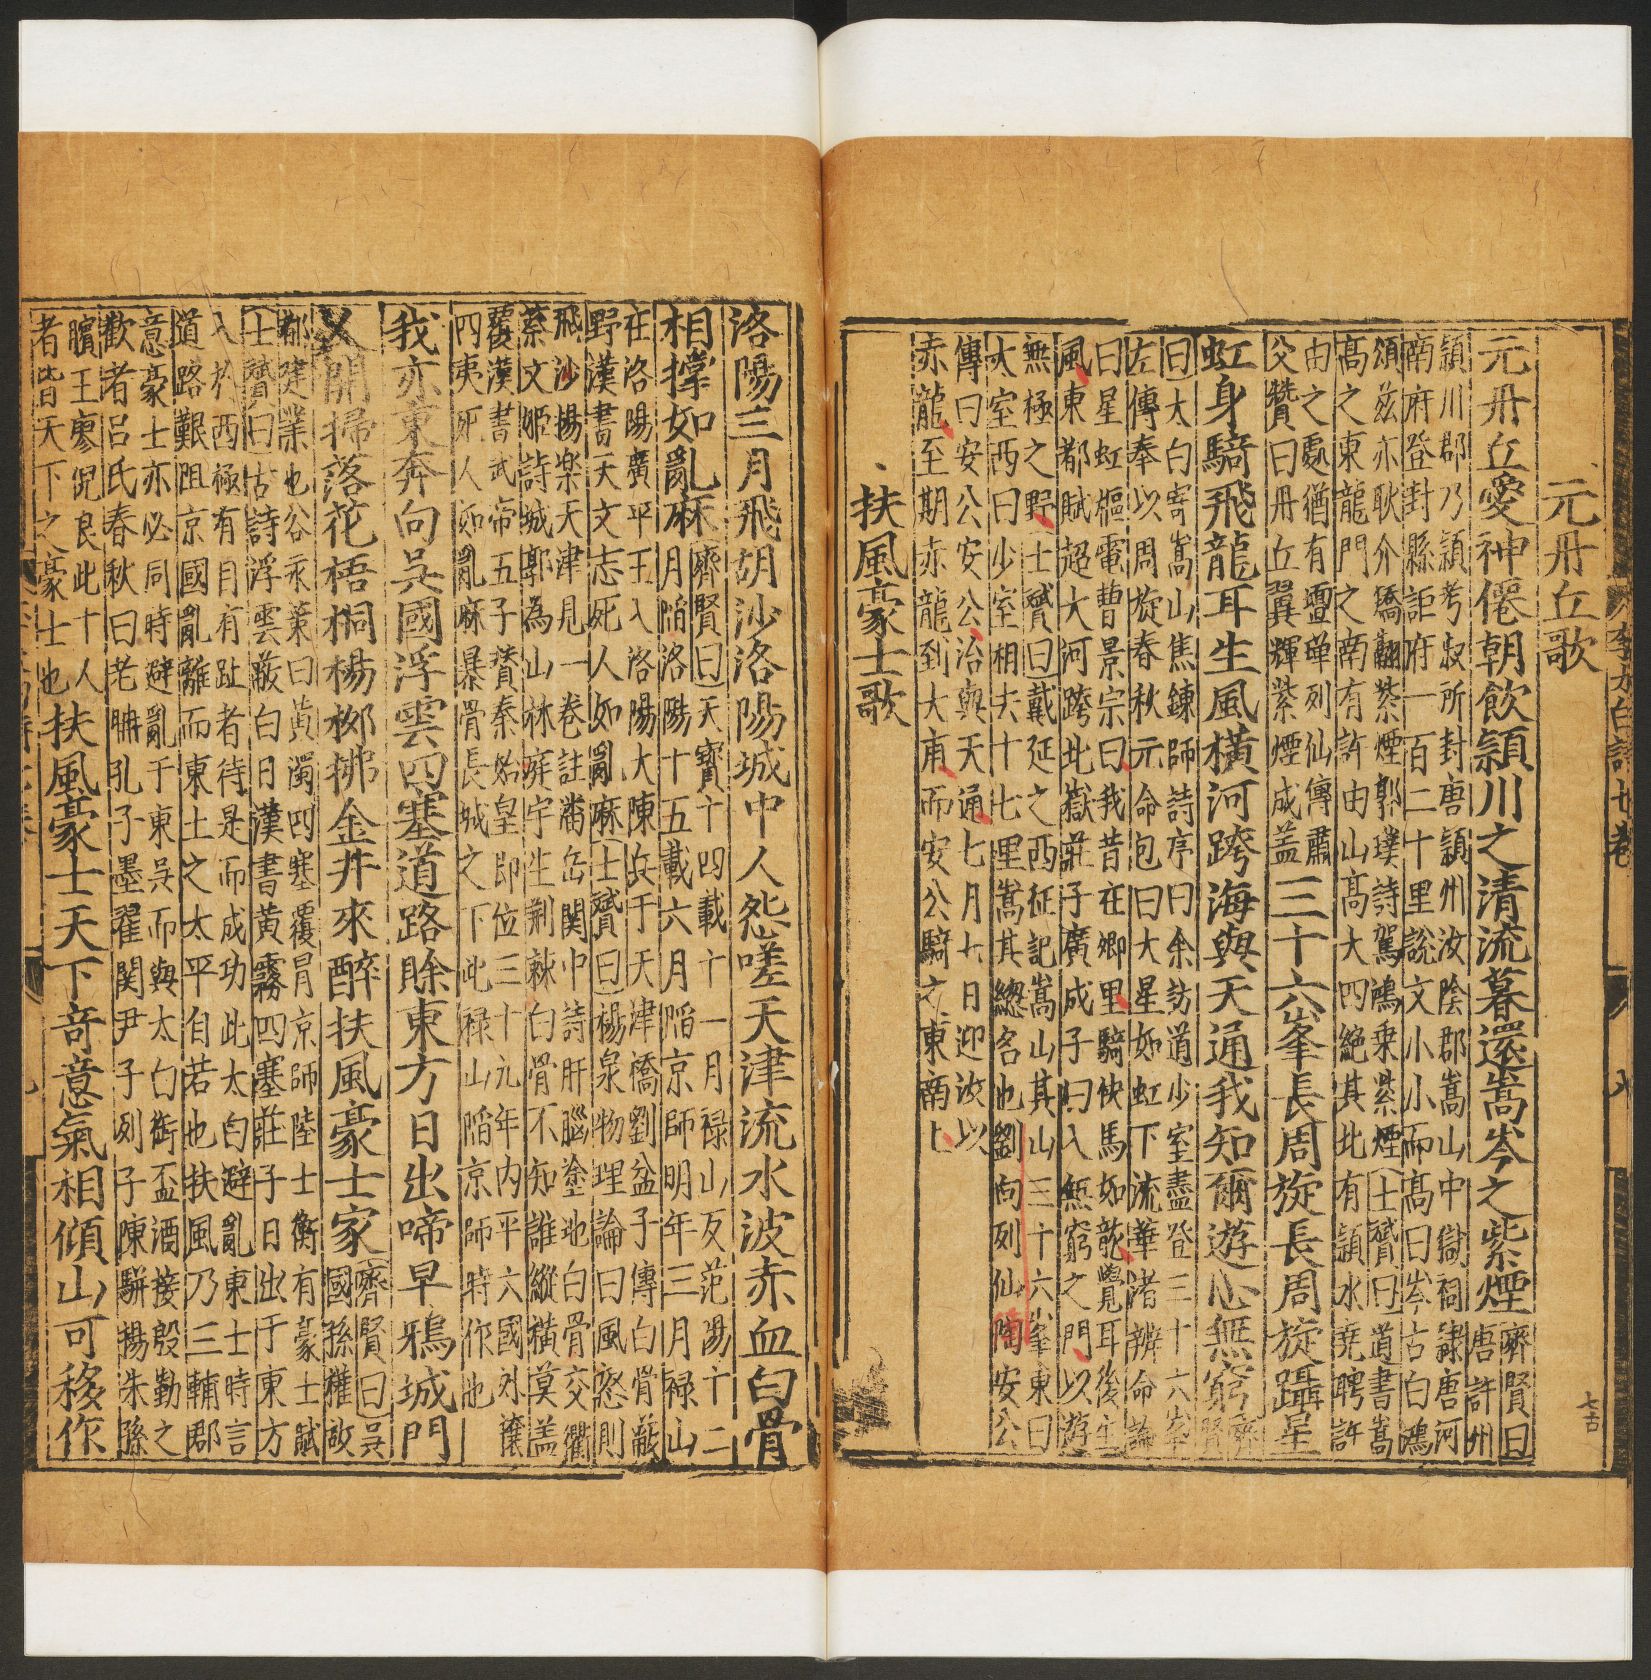 李太白詩七卷
八
元丹丘歌
元丹丘愛神僊朝飲潁川之清流暮還嵩岑之紫煙齊賢曰唐許州
潁川郡乃潁考叔所封唐潁州汝陰郡嵩山中嶽祠隷唐河
南府登封縣距府一百二十里説文小小而高曰岑古白鴻
頌茲亦耿介矯翮紫煙郭璞詩駕鴻乗紫煙士贇曰道書嵩
高之東龍門之南有許由山高大四絶其北有潁水堯聘許
由之處猶有壇墠列仙傳蕭
父贊曰丹丘翼輝紫煙成蓋三十六峯長周旋長周旋躡星
虹身騎飛龍耳生風橫河跨海與天通我知爾遊心無窮齊賢
曰太白寄嵩山焦鍊師詩序曰余訪道少室盡登三十六峯
左傳奉以周旋春秋元命包曰大星如虹下流華渚辨命論
曰星虹樞電曹景宗曰我昔在鄉里騎快馬如龍覺耳後生
風東都賦超大河跨北嶽莊子廣成子曰入無窮之門以遊
無極之野士贇曰戴延之西征記嵩山其山三十六峯東曰
太室西曰少室相去十七里嵩其緫名也劉向列仙陶安公
傳曰安公安公冶與天通七月七日迎汝以
赤龍至期赤龍到大雨而安公騎之東南上
扶風豪士歌
洛陽三月飛胡沙洛陽城中人怨嗟天津流水波赤血白骨
相撐如亂麻齊賢曰天寶十四載十一月禄山反范陽十二
月陷洛陽十五載六月陷京師明年三月禄山
在洛陽廣平王入洛陽大陳兵于天津橋劉盆子傳白骨蔽
野漢書天文志死人如亂麻士贇曰楊泉物理論曰風怒則
飛沙揚楽天津見一卷註潘岳関中詩肝腦塗地白骨交衢
蔡文姬詩城郭為山林庭宇生荆棘白骨不知誰縱橫莫盖
覆漢書武帝五子賛秦始皇即位三十九年内平六國外攘
四夷死人如亂麻暴骨長城之下此禄山陷京師時作也
我亦東奔向吳國浮雲四塞道路賒東方日出啼早鴉城門
人開掃落花梧桐楊栁拂金井來醉扶風豪士家齊賢曰吳國孫權啟
都建業也谷永策曰黄濁四塞覆冒京師陸士衡有豪士賦
士贇曰古詩浮雲蔽白日漢書黄霧四塞莊子日出于東方
入於西極有目有趾者待是而成功此太白避亂東土時言
道路艱阻京國亂離而東土之太平自若也扶風乃三輔郡
意豪士亦必同時避亂于東吳而與太白銜盃酒接殷勤之
歡者吕氏春秋曰老耼孔子墨翟関尹子列子陳駢揚朱孫
臏王廖倪良此十人
者皆天下之豪士也扶風豪士天下竒意氣相傾山可移作